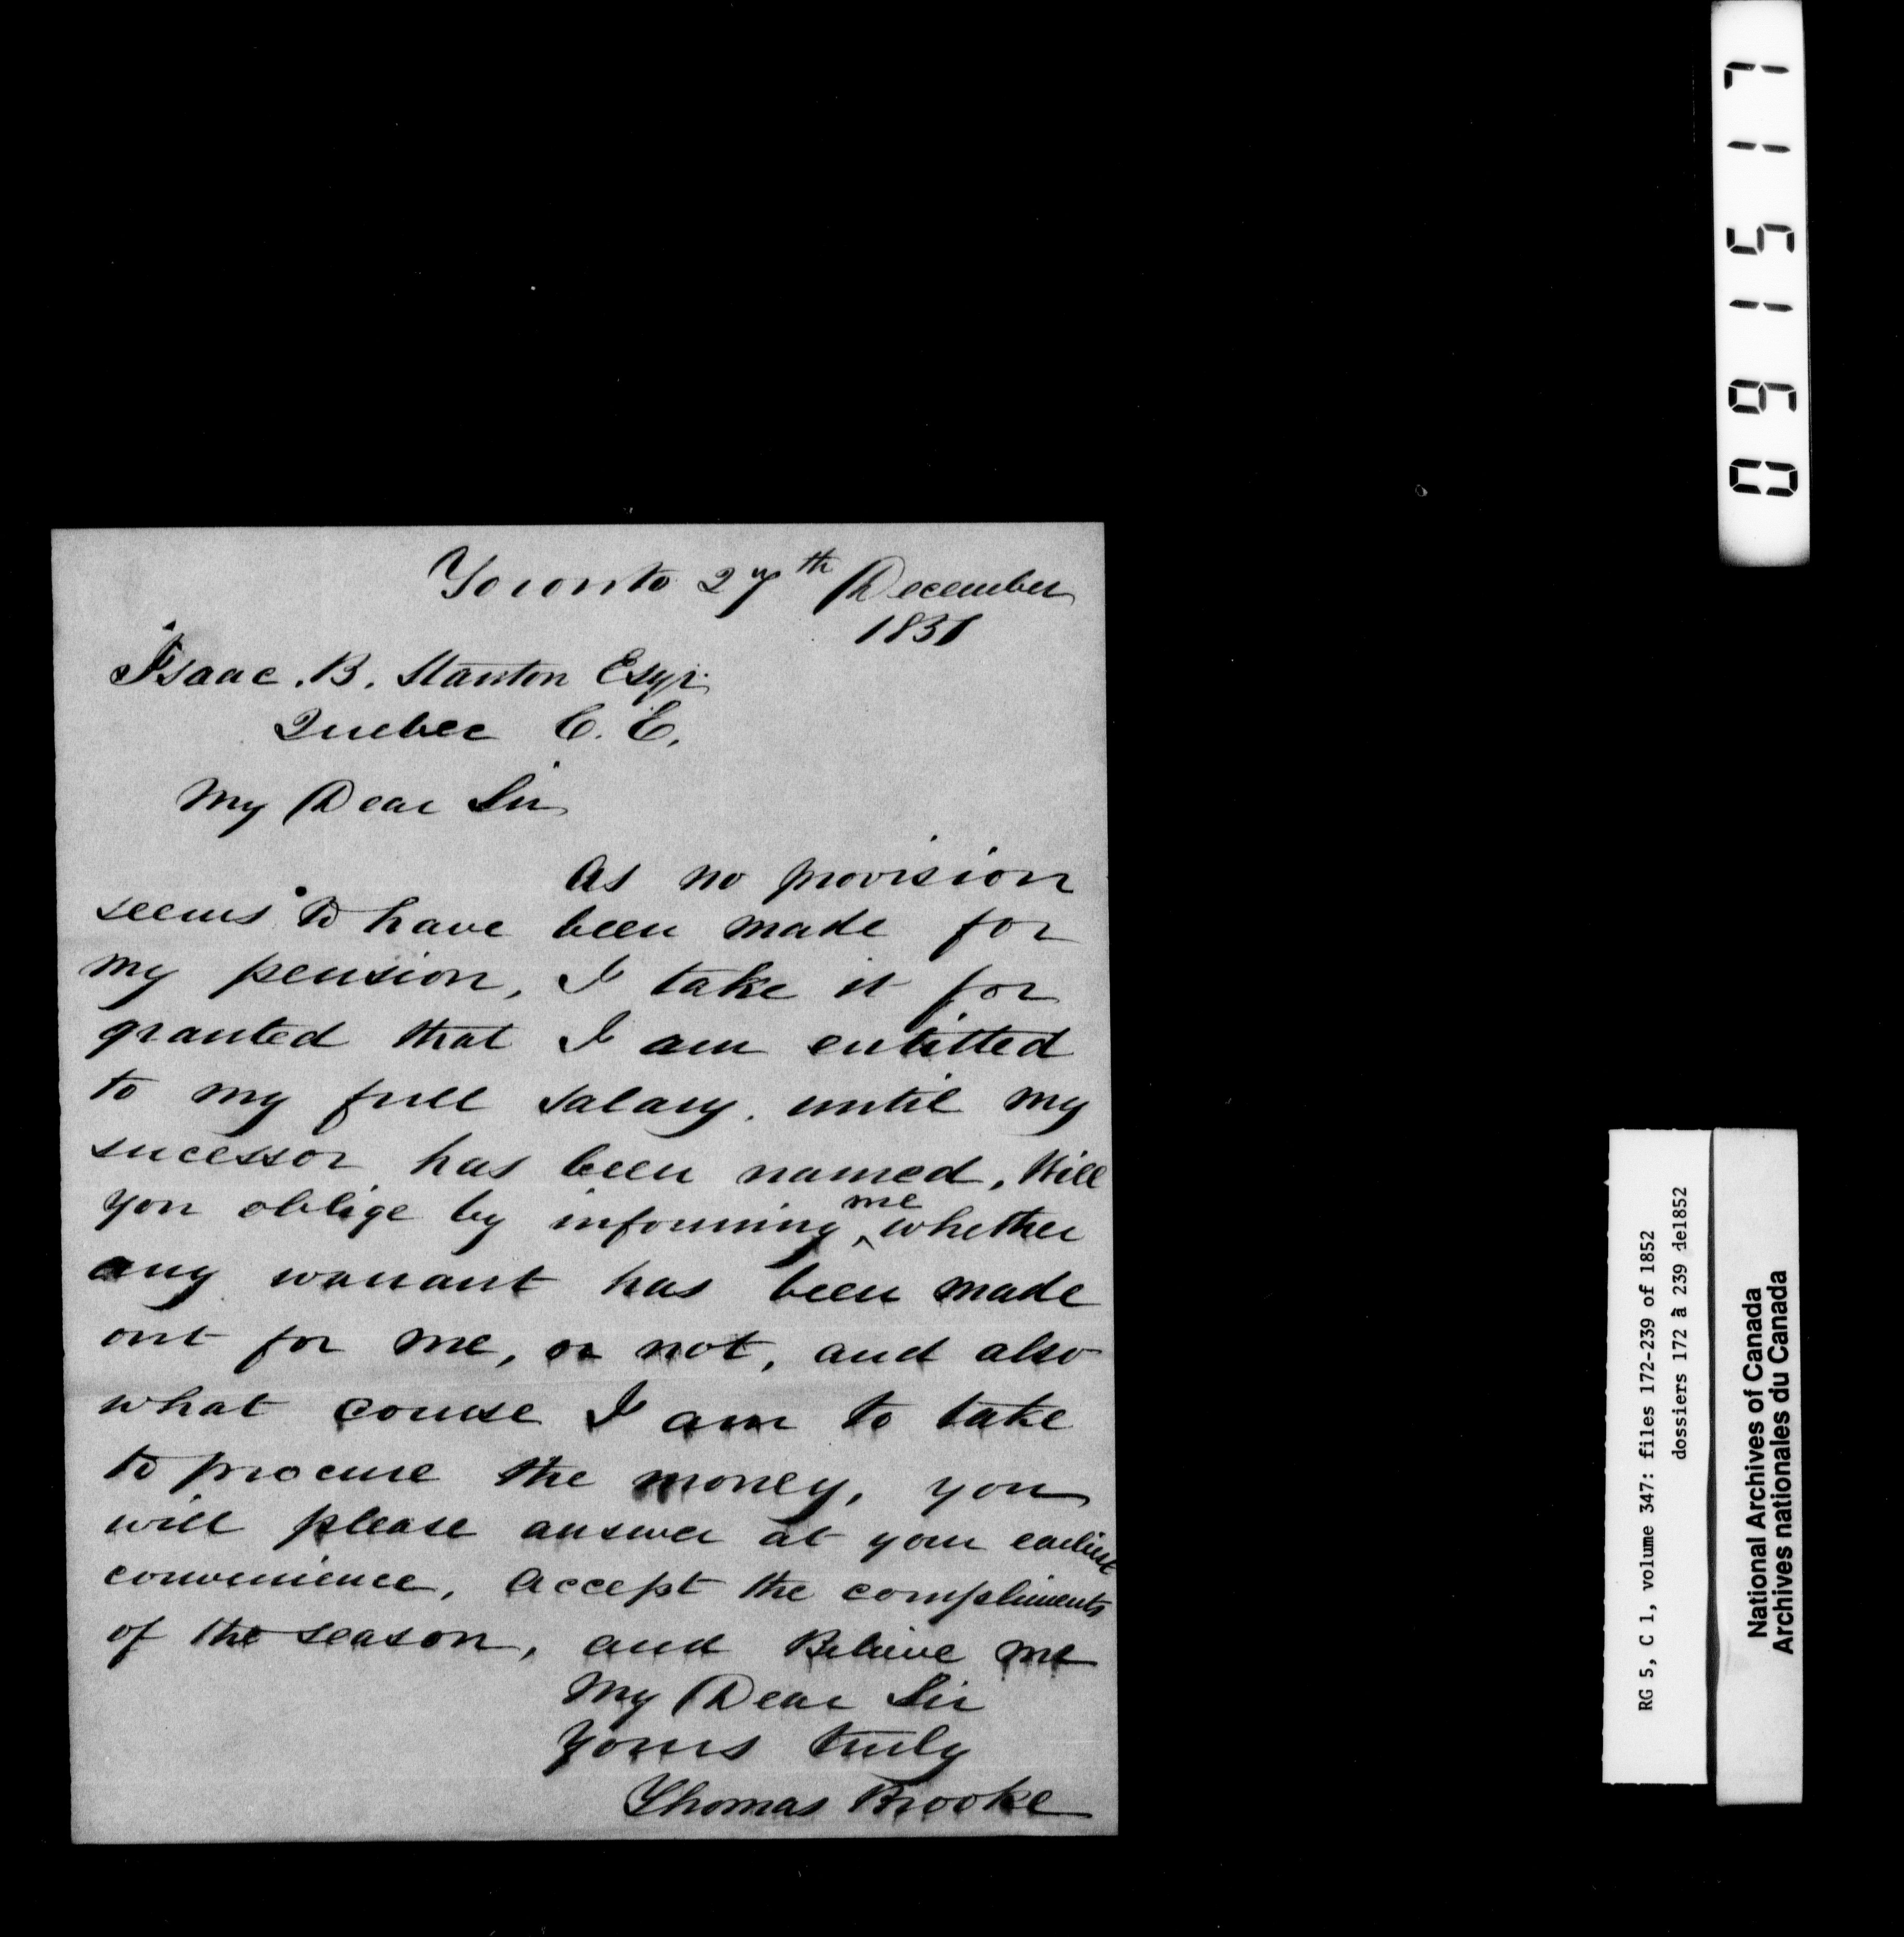 Toronto 27th December
1851
Isaac. B. Stanton Esqr.
Quebec C. E.
My Dear Sir
As no provision
seems to have been made for
my pension, I take it for
granted that I am entitted
to my full salary. until my
sucessor has been named, Will
you oblige by informing me whether
any warrant has been made
out for me, or not, and also
what course I am to take
to procure the money, you
will please answer at your earliest
convenience, Accept the compliments
of the season, and Believe me
My Dear Sir
Yours truly
Thomas Brooke
091517
RG 5, C 1, volume 347: files 172-239 of 1852
dossiers 172 à 239 de1852
National Archives of Canada
Archives nationales du Canada